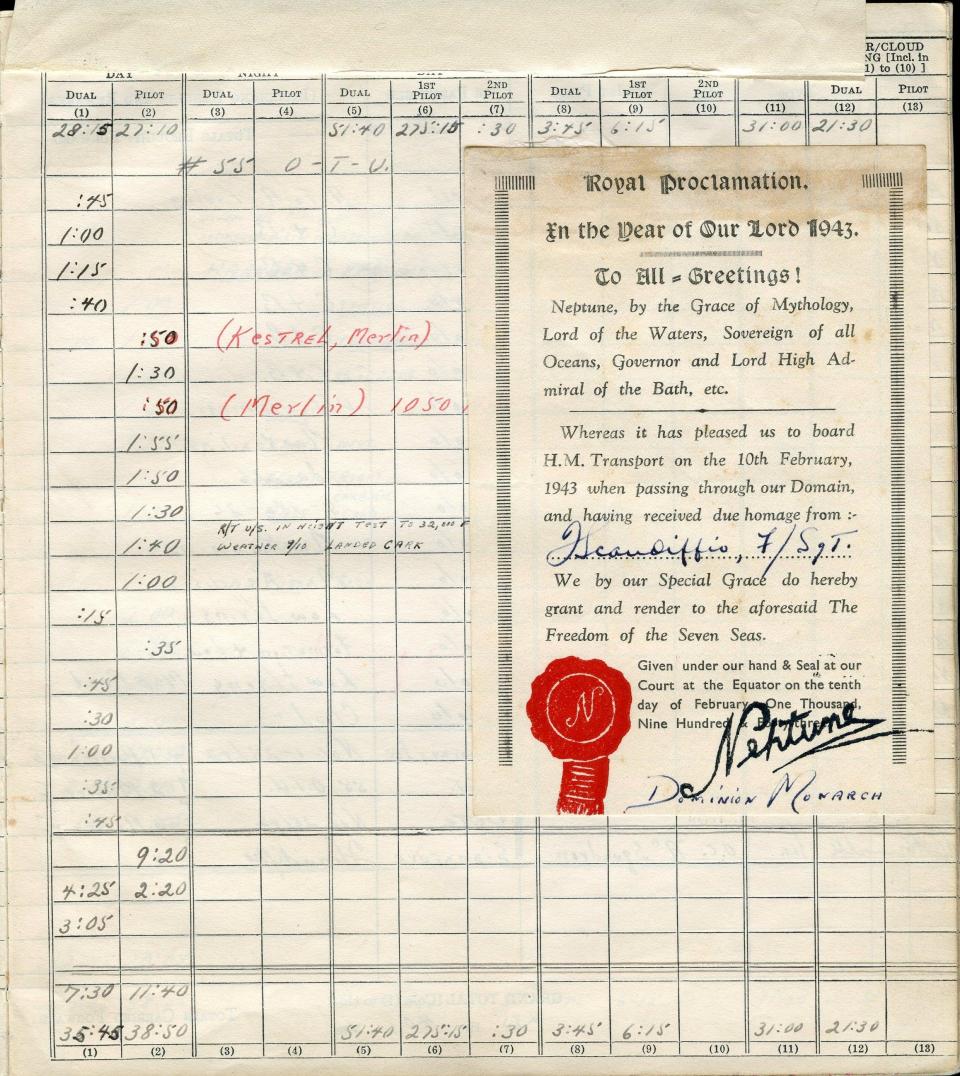 R/CLOUD
NG [Incl. in
1) to (10) ]
DAY NIGHT DAY
DUAL PILOT DUAL PILOT DUAL 1ST PILOT 2ND PILOT DUAL 1ST PILOT 2ND PILOT DUAL PILOT
(1) (2) (3) (4) (5) (6) (7) (8) (9) (10) (11) (12) (13)
28:15 27:10 51:40 275:15 :30 3:45 6:15 31:00 21:30
# 55 O-T-U.
:45
1:00
1:15
:40
:50 (KESTREL, Merlin)
1:30
:50 (Merlin) 1050
1:55
1:50
1:30
R/T U/S. IN HEIGHT TEST TO 32,000 F
1:40 WEATHER 9/10 LANDED CARK
1:00
:15
:35
:45
:30
1:00
:35
:45
9:20
4:25 2:20
3:05
7:30 11:40
35:45 38:50 51:40 275:15 :30 3:45 6:15 31:00 21:30
(1) (2) (3) (4) (5) (6) (7) (8) (9) (10) (11) (12) (13)
Royal Proclamation.
In the Year of Our Lord 1943.
To All = Greetings!
Neptune, by the Grace of Mythology,
Lord of the Waters, Sovereign of all
Oceans, Governor and Lord High Ad-
miral of the Bath, etc.
Whereas it has pleased us to board
H.M. Transport on the 10th February,
1943 when passing through our Domain,
and having received due homage from :-
Scandiffio, F/SgT.
We by our Special Grace do hereby
grant and render to the aforesaid The
Freedom of the Seven Seas.
Given under our hand & Seal at our
Court at the Equator on the tenth
day of February One Thousand,
Nine Hundred & Forty three
N
Neptune
DOMINION MONARCH